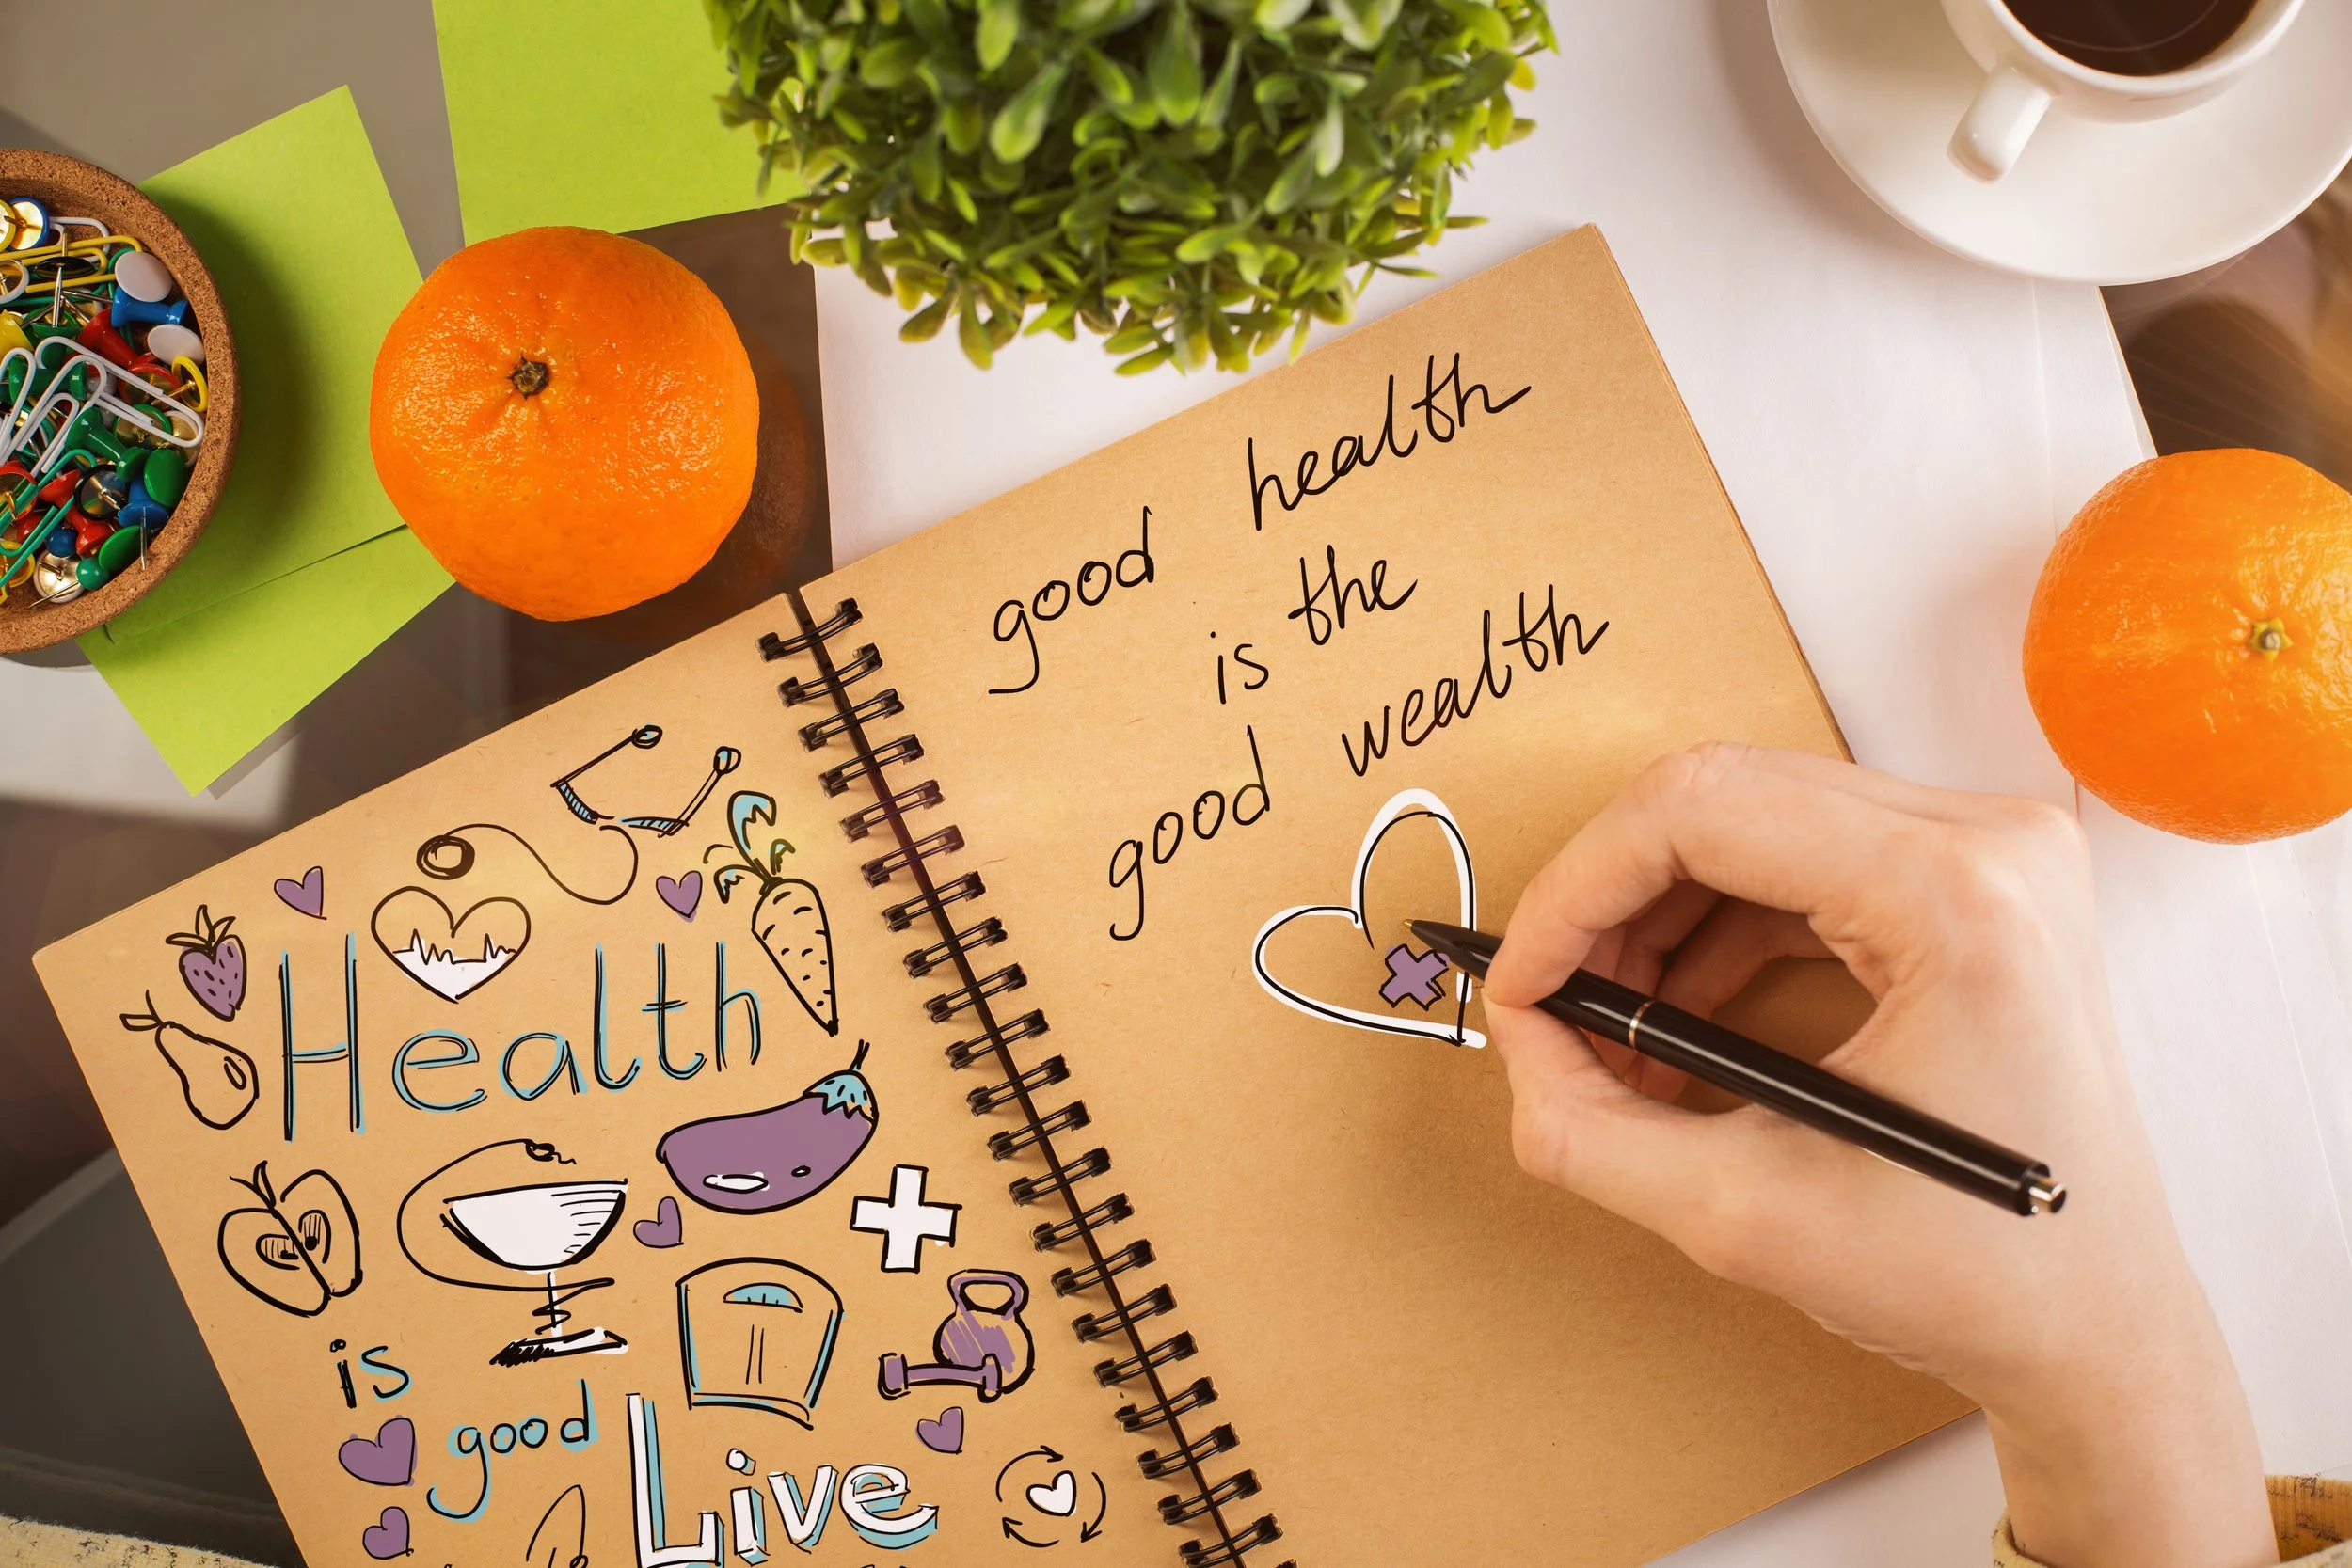 Health
is
good
Live
good health
is the
good wealth